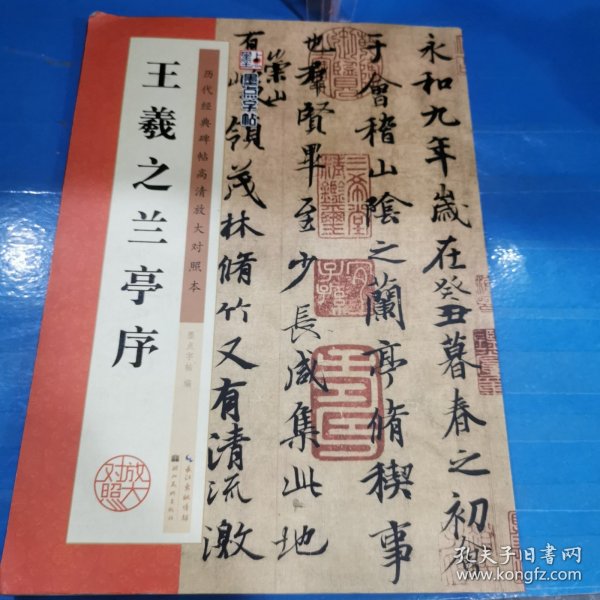 王羲之兰亭序
历代经典碑帖高清放大对照本
墨点字帖 编
放大
对照
长江出版传媒
湖北美术出版社
墨点字帖
永和九年歲在癸丑暮春之初會
于會稽山陰之蘭亭脩稧事
也羣賢畢至少長咸集此地
有崇山
峻領茂林脩竹又有清流激
三希堂
孔夫子旧书网
www.kongfz.com